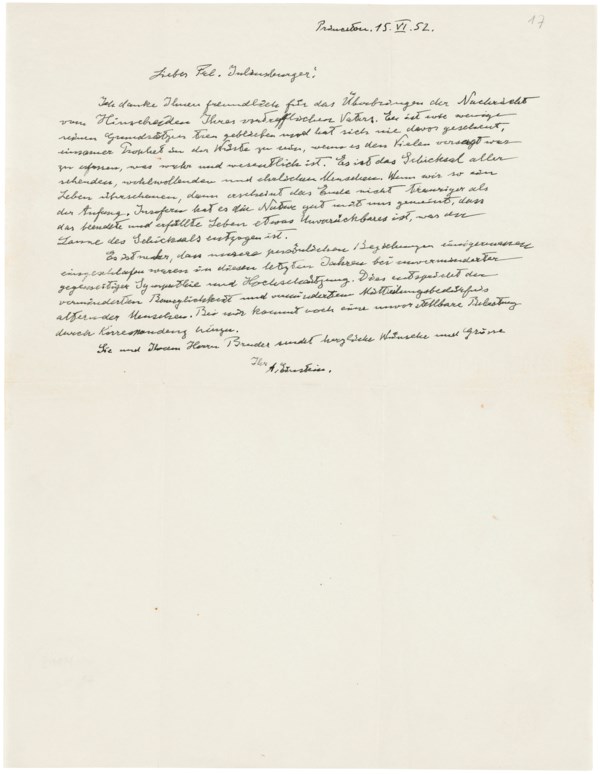 17
Princeton. 15. VI. 52.
Liebes Frl. Juliusburger!
Ich danke Ihnen freundlich für das Überbringen der Nachricht
vom Hinscheiden Ihres vortrefflichen Vaters. Er ist wie wenige
seinen Grundsätzen treu geblieben und hat sich nie davor gescheut,
einsamer Prophet in der Wüste zu sein, wenn es den Vielen versagt war
zu erfassen, was wahr und wesentlich ist. Es ist das Schicksal aller
sehenden, wohlwollenden und ehrlichen Menschen. Wenn wir so ein
Leben überschauen, dann erscheint das Ende nicht trauriger als
der Anfang. Insofern hat es die Natur gut mit uns gemeint, dass
das beendete und erfüllte Leben etwas Unverrückbares ist, was der
Laune des Schicksals entzogen ist.
Es ist wahr, dass unsere persönlichen Beziehungen einigermassen
eingeschlafen waren in diesen letzten Jahren bei unverminderter
gegenseitiger Sympathie und Hochschätzung. Dies entspricht der
verminderten Beweglichkeit und vermindertem Mitteilungsbedürfnis
alternder Menschen. Bei mir kommt noch eine unvorstellbare Belastung
durch Korrespondenz hinzu.
Sie und Ihrem Herrn Bruder sendet herzliche Wünsche und Grüsse
Ihr
A. Einstein.